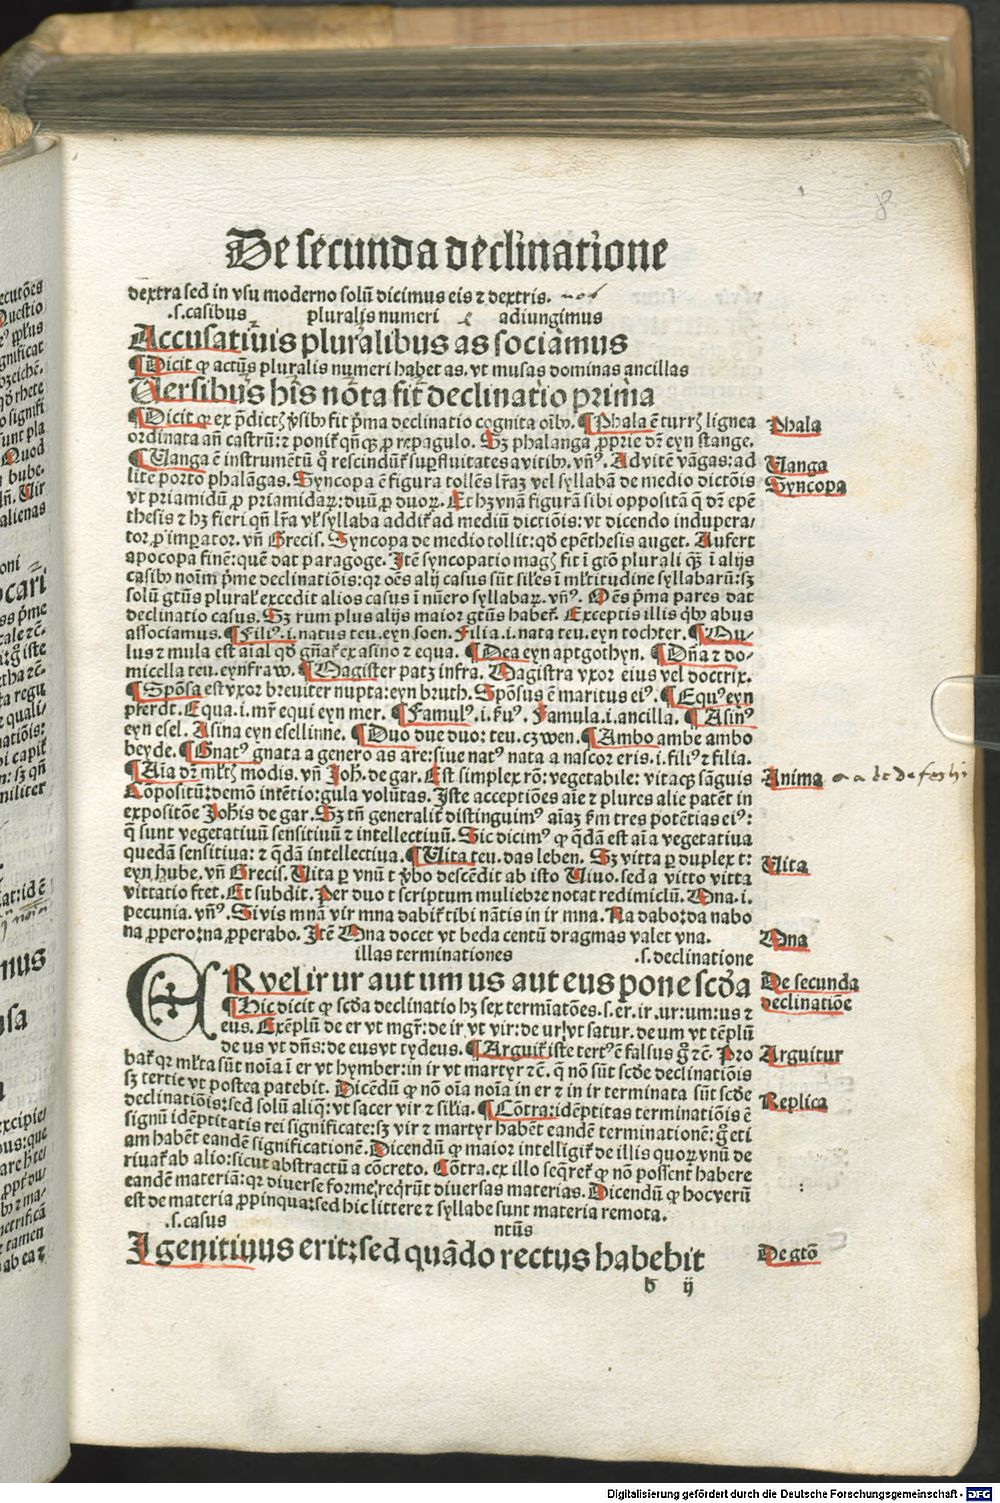 8
De secunda declinatione
dextra sed in vsu moderno solū dicimus eis ⁊ dextris.
.s.casibus pluralis numeri adiungimus
Accusatiuis pluralibus as sociamus
¶Dicit ꝙ actūs pluralis numeri habet as. vt musas dominas ancillas
Uersibus his nota fit declinatio prima
¶Dicit ꝙ ex p̄dictꝭ fit p̄ma declinatio cognita oībꝫ. ¶Phala ē turrꝭ lignea
Phala
ordinata añ castrū: ⁊ ponit᷑ qñqꝫ ꝓ repagulo. Sꝫ phalanga ꝓprie dr̄ eyn stange.
¶Uanga ē instrumētū q̊ rescindūt᷑ suꝑfluitates a vitibꝫ. vñꝰ. Ad vitē vāgas: ad
Uanga
lite porto phalāgas. Syncopa ē figura tollēs lr̄aꝫ vel syllabā de medio dictōis
Syncopa
vt priamidū ꝓ priamidaꝝ: duū ꝓ duoꝝ. Et hꝫ vnā figurā sibi oppositā q̄ dr̄ epē
thesis ⁊ hꝫ fieri qñ lr̄a vl̓ syllaba addit᷑ ad mediū dictiōis: vt dicendo indupera/
tor ꝓ imꝑator. vñ Grecis. Syncopa de medio tollit: qd̓ epēthesis auget. Aufert
apocopa finē: quē dat paragoge. Itē syncopatio magꝭ fit ī gtō plurali qꝫ̄ ī alijs
casibꝫ noīm p̄me declinatiōis: qr oēs alij casus sūt sil̓es ī ml̓titudine syllabarū: sꝫ
solū gtūs plural̓ excedit alios casus ī nūero syllabaꝝ. vñꝰ. Oēs p̄ma pares dat
declinatio casus. Sꝫ rum plus alijs maior gtūs habet᷑. Exceptis illis qͥbꝫ abus
associamus. ¶Filiꝰ.i.natus teu. eyn soen. Filia.i.nata teu. eyn tochter. ¶Mu-
lus ⁊ mula est aīal qd̓ gñat᷑ ex asino ⁊ equa. ¶Dea eyn aptgothyn. ¶Dña ⁊ do-
micella teu. eynfraw. ¶Magister patꝫ infra. Magistra vxor eius vel doctrix.
¶Spōsa est vxor breuiter nupta: eyn bruth. Spōsus ē maritus eiꝰ. ¶Equꝰ eyn
pferdt. Equa.i.mr̄ equi eyn mer. ¶Famulꝰ.i.ẜuꝰ. Famula.i.ancilla. ¶Asinꝰ
eyn esel. Asina eyn esellinne. ¶Duo due duo: teu. czwen. ¶Ambo ambe ambo
beyde. ¶Gnatꝰ gnata a genero as are: siue natꝰ nata a nascor eris.i.filiꝰ ⁊ filia.
¶Aīa dr̄ ml̓tꝭ modis. vñ Joh̓. de gar. Est simplex rō: vegetabile: vita qꝫ sāguis
Anima
Cōpositū: demō intētio: gula volūtas. Iste acceptiōes aīe ⁊ plures alie patēt in
expositōe Joh̓is de gar. Sꝫ tñ generalit᷑ distinguimꝰ aīaꝫ ẜm tres potētias eiꝰ:
q̄ sunt vegetatiuū sensitiuū ⁊ intellectiuū. Sic dicimꝰ ꝙ q̄dā est aīa vegetatiua
quedā sensitiua: ⁊ q̄dā intellectiua. ¶Uita teu. das leben. Sꝫ vitta ꝑ duplex t:
Uita
eyn hube. vñ Grecis. Uita ꝑ vnū t v̓bo descēdit ab isto Uiuo. sed a vitto vitta
vittatio fiet. Et subdit. Per duo t scriptum muliebre notat redimiclū. Mna.i.
pecunia. vñꝰ. Si vis mnā vir mna dabit᷑ tibi nātis in ir mna. Na dabo: da nabo
na ꝓpero: na ꝓperabo. Itē Mna docet vt beda centū dragmas valet vna.
Mna
illas terminationes .s.declinatione
ER vel ir ur aut um us aut eus pone scd̓a
De secunda
declinatiōe
¶Hic dicit ꝙ scd̓a declinatio hꝫ sex termīatōes.s.er.ir.ur:um:us ⁊
eus. Exēplū de er vt mgr̄: de ir vt vir: de ur vt satur. de um vt tēplū
de us vt dñs: de eus vt tydeus. ¶Arguit᷑ iste tertꝰ ē falsus g̊ ⁊c̄. Pro
Arguitur
bat᷑ qr ml̓ta sūt noīa ī er vt hymber: in ir vt martyr ⁊c̄. q̄ nō sūt scd̓e declinatiōis
sꝫ tertie vt postea patebit. Dicēdū ꝙ nō oīa noīa in er ⁊ in ir terminata sūt scd̓e
declinatiōis: sed solū aliq̄: vt sacer vir ⁊ sil̓ia. ¶Cōtra: idēptitas terminatiōis ē
Replica
signū idēptitatis rei significate: sꝫ vir ⁊ martyr habēt eandē terminationē: g̊ eti
am habēt eandē significationē. Dicendū ꝙ maior intelligit᷑ de illis quoꝝ vnū de
riuat᷑ ab alio: sicut abstractū a cōcreto. Cōtra. ex illo seq̄ret᷑ ꝙ nō possent habere
eandē materiā: qr diuerse forme reqͥrūt diuersas materias. Dicendū ꝙ hoc verū
est de materia ꝓpinqua: sed hic littere ⁊ syllabe sunt materia remota.
.s.casus ntūs
I genitiuus erit: sed quādo rectus habebit
De gtō
b ij
Digitalisierung gefördert durch die Deutsche Forschungsgemeinschaft - DFG